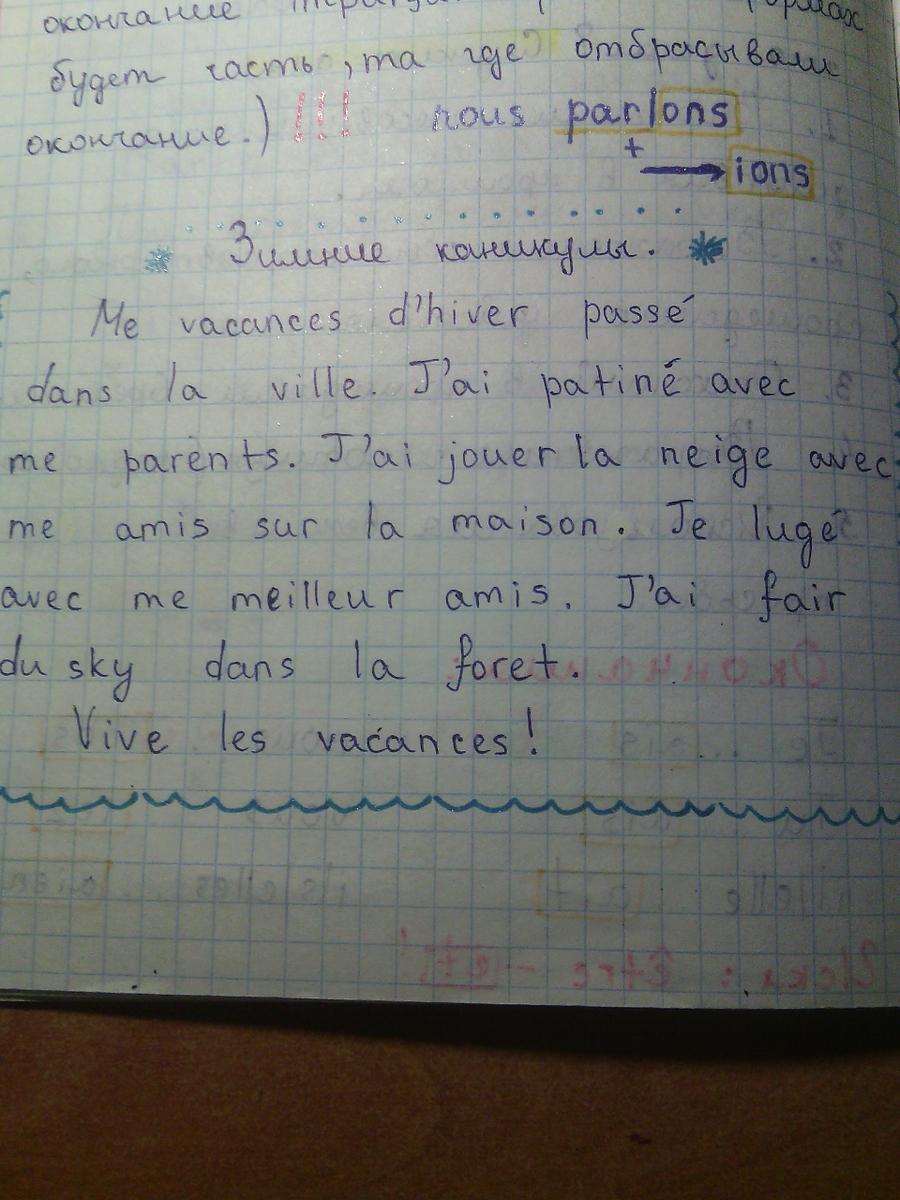 окончание
будет часть, та где отбрасывали
окончание.) !!! nous parlons
+
→ ions
Зимние каникулы.
Me vacances d'hiver passé
dans la ville. J'ai patiné avec
me parents. J'ai jouer la neige avec
me amis sur la maison. Je lugé
avec me meilleur amis. J'ai fair
du sky dans la foret.
Vive les vacances!